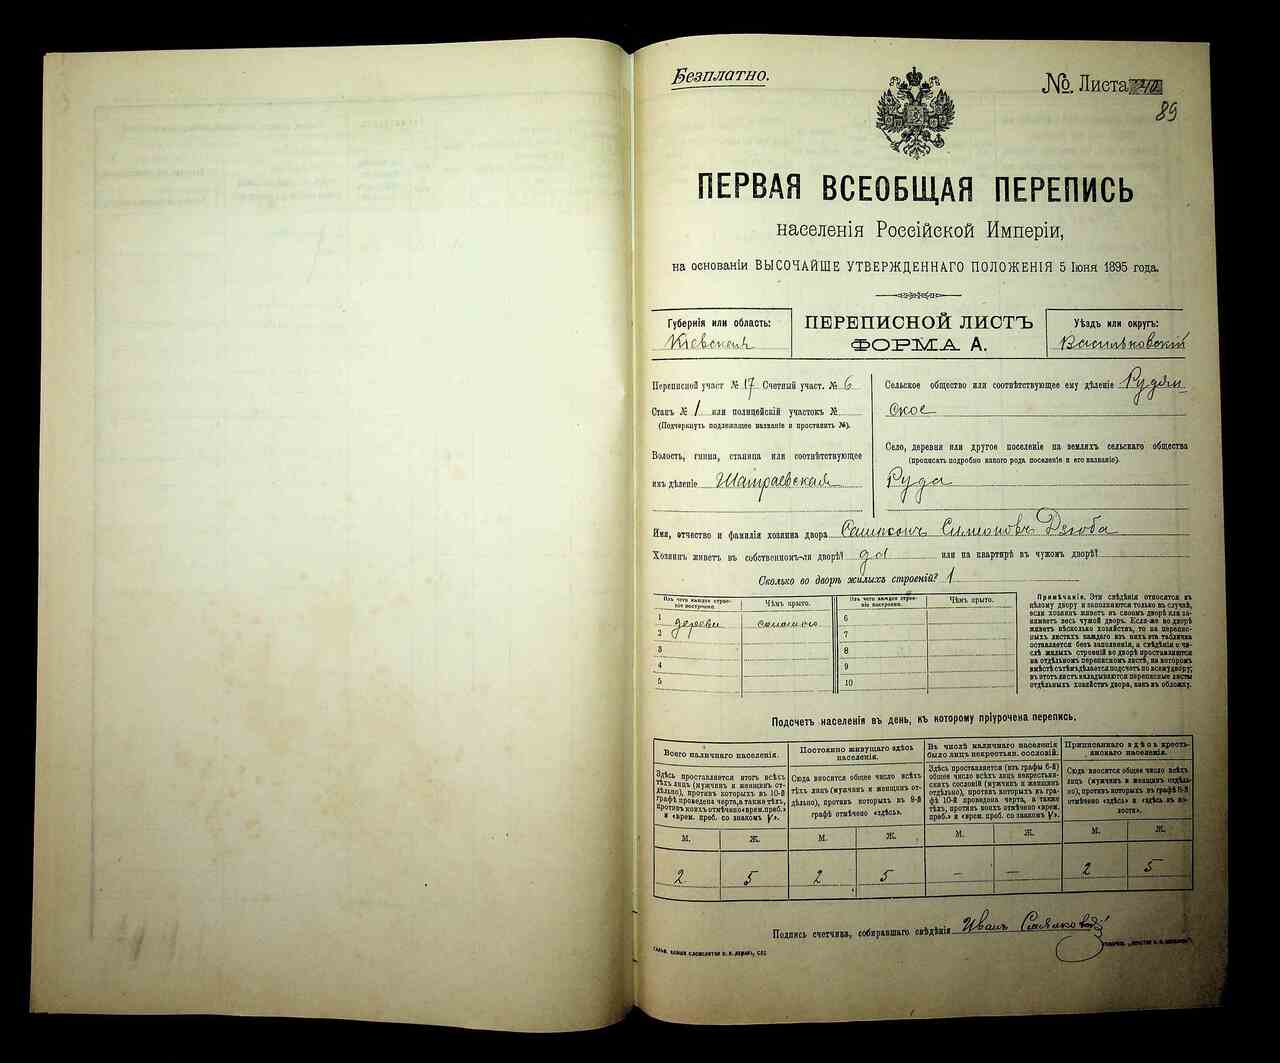 Безплатно.
№. Листа 40
89
ПЕРВАЯ ВСЕОБЩАЯ ПЕРЕПИСЬ
населенія Россійской Имперіи,
на основаніи ВЫСОЧАЙШЕ УТВЕРЖДЕННАГО ПОЛОЖЕНІЯ 5 Іюня 1895 года.
Губернія или область:
Кіевская
ПЕРЕПИСНОЙ ЛИСТЪ
ФОРМА А.
Уѣздъ или округъ:
Васильковскій
Переписной участ № 17 Счетный участ. № 6
Станъ № 1 или полицейскій участокъ №
(Подчеркнуть подлежащее названіе и проставить №).
Волость, гмина, станица или соотвѣтствующее
имъ дѣленіе Шатраевская
Сельское общество или соотвѣтствующее ему дѣленіе Рудян
ское
Село, деревня или другое поселеніе на земляхъ сельскаго общества
(прописать подробно какого рода поселеніе и его названіе).
Руда
Имя, отчество и фамилія хозяина двора Сампсонъ Симоновъ Дзюба
Хозяинъ живетъ въ собственномъ-ли дворѣ? да или на квартирѣ въ чужомъ дворѣ?
Сколько во дворѣ жилыхъ строеній? 1
Изъ чего каждое строе-
ніе построено.
Чѣмъ крыто.
Изъ чего каждое строе-
ніе построено.
Чѣмъ крыто.
1 дерева соломою 6
2 7
3 8
4 9
5 10
Примѣчаніе. Эти свѣдѣнія относятся къ
цѣлому двору и заполняются только въ случаѣ,
если хозяинъ живетъ въ своемъ дворѣ или за-
нимаетъ весь чужой дворъ. Если-же во дворѣ
живетъ нѣсколько хозяйствъ, то на перепис-
ныхъ листахъ каждаго изъ нихъ эта табличка
оставляется безъ заполненія, а свѣдѣнія о чи-
слѣ жилыхъ строеній во дворѣ проставляются
на отдѣльномъ переписномъ листѣ, на которомъ
вмѣстѣ съ тѣмъ дѣлается подсчетъ по всему двору;
въ этотъ листъ вкладываются переписные листы
отдѣльныхъ хозяйствъ двора, какъ въ обложку.
Подсчетъ населенія въ день, къ которому пріурочена перепись.
Всего наличнаго населенія.
Постоянно живущаго здѣсь
населенія.
Въ числѣ наличнаго населенія
было лицъ некрестьян. сословій.
Приписаннаго здѣсь кресть-
янскаго населенія.
Здѣсь проставляется итогъ всѣхъ
лицъ (мужчинъ и женщинъ от-
дѣльно), противъ которыхъ въ 10-й
графѣ проведена черта, а также тѣхъ,
противъ коихъ отмѣчено «врем. преб.»
и «врем. преб. со знакомъ V».
Сюда вносится общее число всѣхъ
тѣхъ лицъ (мужчинъ и женщинъ от-
дѣльно), противъ которыхъ въ 9-й
графѣ отмѣчено «здѣсь».
Здѣсь проставляется (изъ графы 6-й)
общее число всѣхъ лицъ некрестьян-
скихъ сословій (мужчинъ и женщинъ
отдѣльно), противъ которыхъ въ гра-
фѣ 10-й проведена черта, а также
тѣхъ, противъ коихъ отмѣчено «врем.
преб.» и «врем. преб. со знакомъ V».
Сюда вносится общее число всѣхъ
лицъ (мужчинъ и женщинъ отдѣль-
но), противъ которыхъ въ графѣ 8-й
отмѣчено «здѣсь» и «здѣсь въ во-
лости».
М. Ж. М. Ж. М. Ж. М. Ж.
2 5 2 5 — — 2 5
Подпись счетчика, собиравшаго свѣдѣнія Иванъ